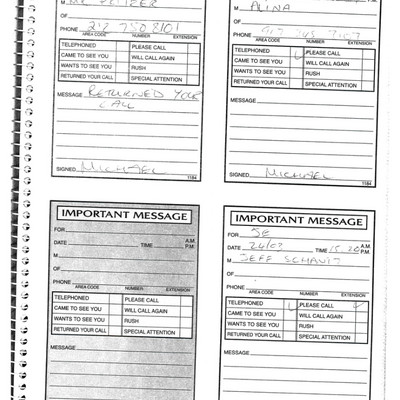 M
OF
PHONE 212 750 8101
AREA CODE NUMBER EXTENSION
TELEPHONED PLEASE CALL
CAME TO SEE YOU WILL CALL AGAIN
WANTS TO SEE YOU RUSH
RETURNED YOUR CALL SPECIAL ATTENTION
MESSAGE RETURNED YOUR
CALL
SIGNED MICHAEL
1184
M ALINA
OF
PHONE
AREA CODE NUMBER EXTENSION
TELEPHONED PLEASE CALL
CAME TO SEE YOU WILL CALL AGAIN
WANTS TO SEE YOU RUSH
RETURNED YOUR CALL SPECIAL ATTENTION
MESSAGE
SIGNED MICHAEL
1184
IMPORTANT MESSAGE
FOR
DATE TIME A.M. P.M.
M
OF
PHONE
AREA CODE NUMBER EXTENSION
TELEPHONED PLEASE CALL
CAME TO SEE YOU WILL CALL AGAIN
WANTS TO SEE YOU RUSH
RETURNED YOUR CALL SPECIAL ATTENTION
MESSAGE
IMPORTANT MESSAGE
FOR JE
DATE 24/03 TIME 15 20 A.M. P.M.
M JEFF
OF
PHONE
AREA CODE NUMBER EXTENSION
TELEPHONED PLEASE CALL
CAME TO SEE YOU WILL CALL AGAIN
WANTS TO SEE YOU RUSH
RETURNED YOUR CALL SPECIAL ATTENTION
MESSAGE